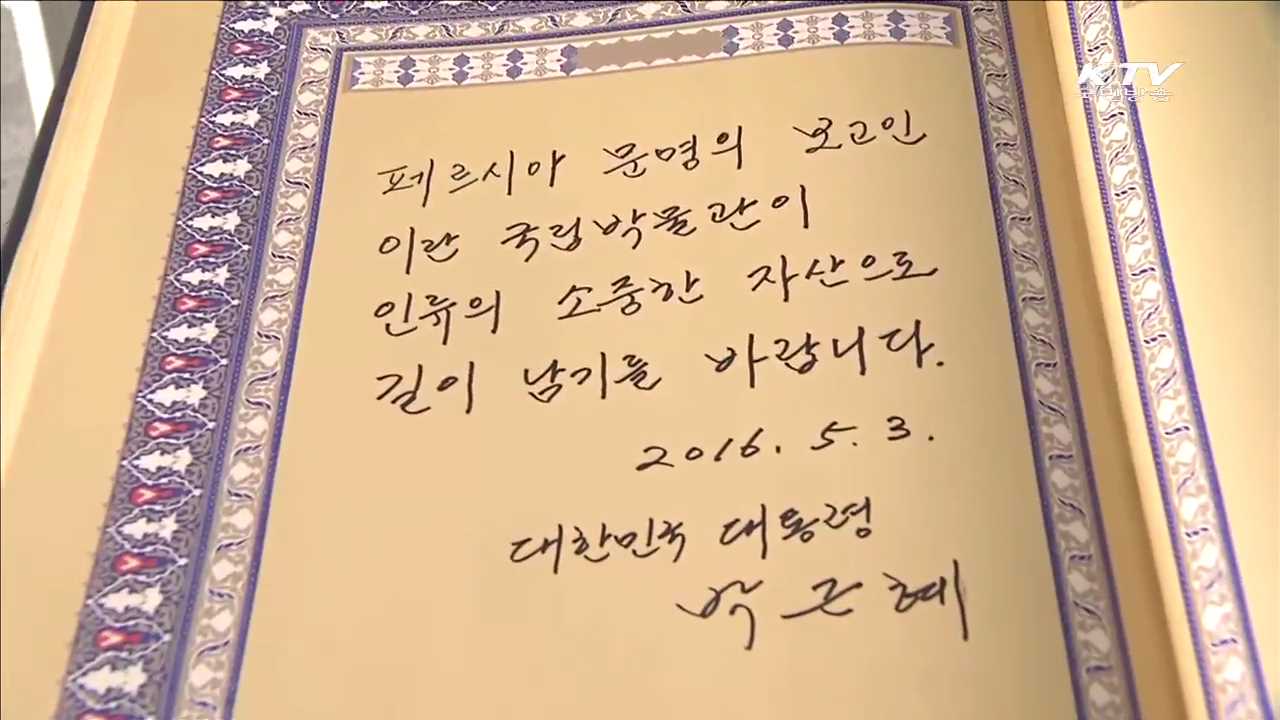 KTV
국민방송
페르시아 문명의 보고인
이란 국립박물관이
인류의 소중한 자산으로
길이 남기를 바랍니다.
2016. 5. 3.
대한민국 대통령
박근혜